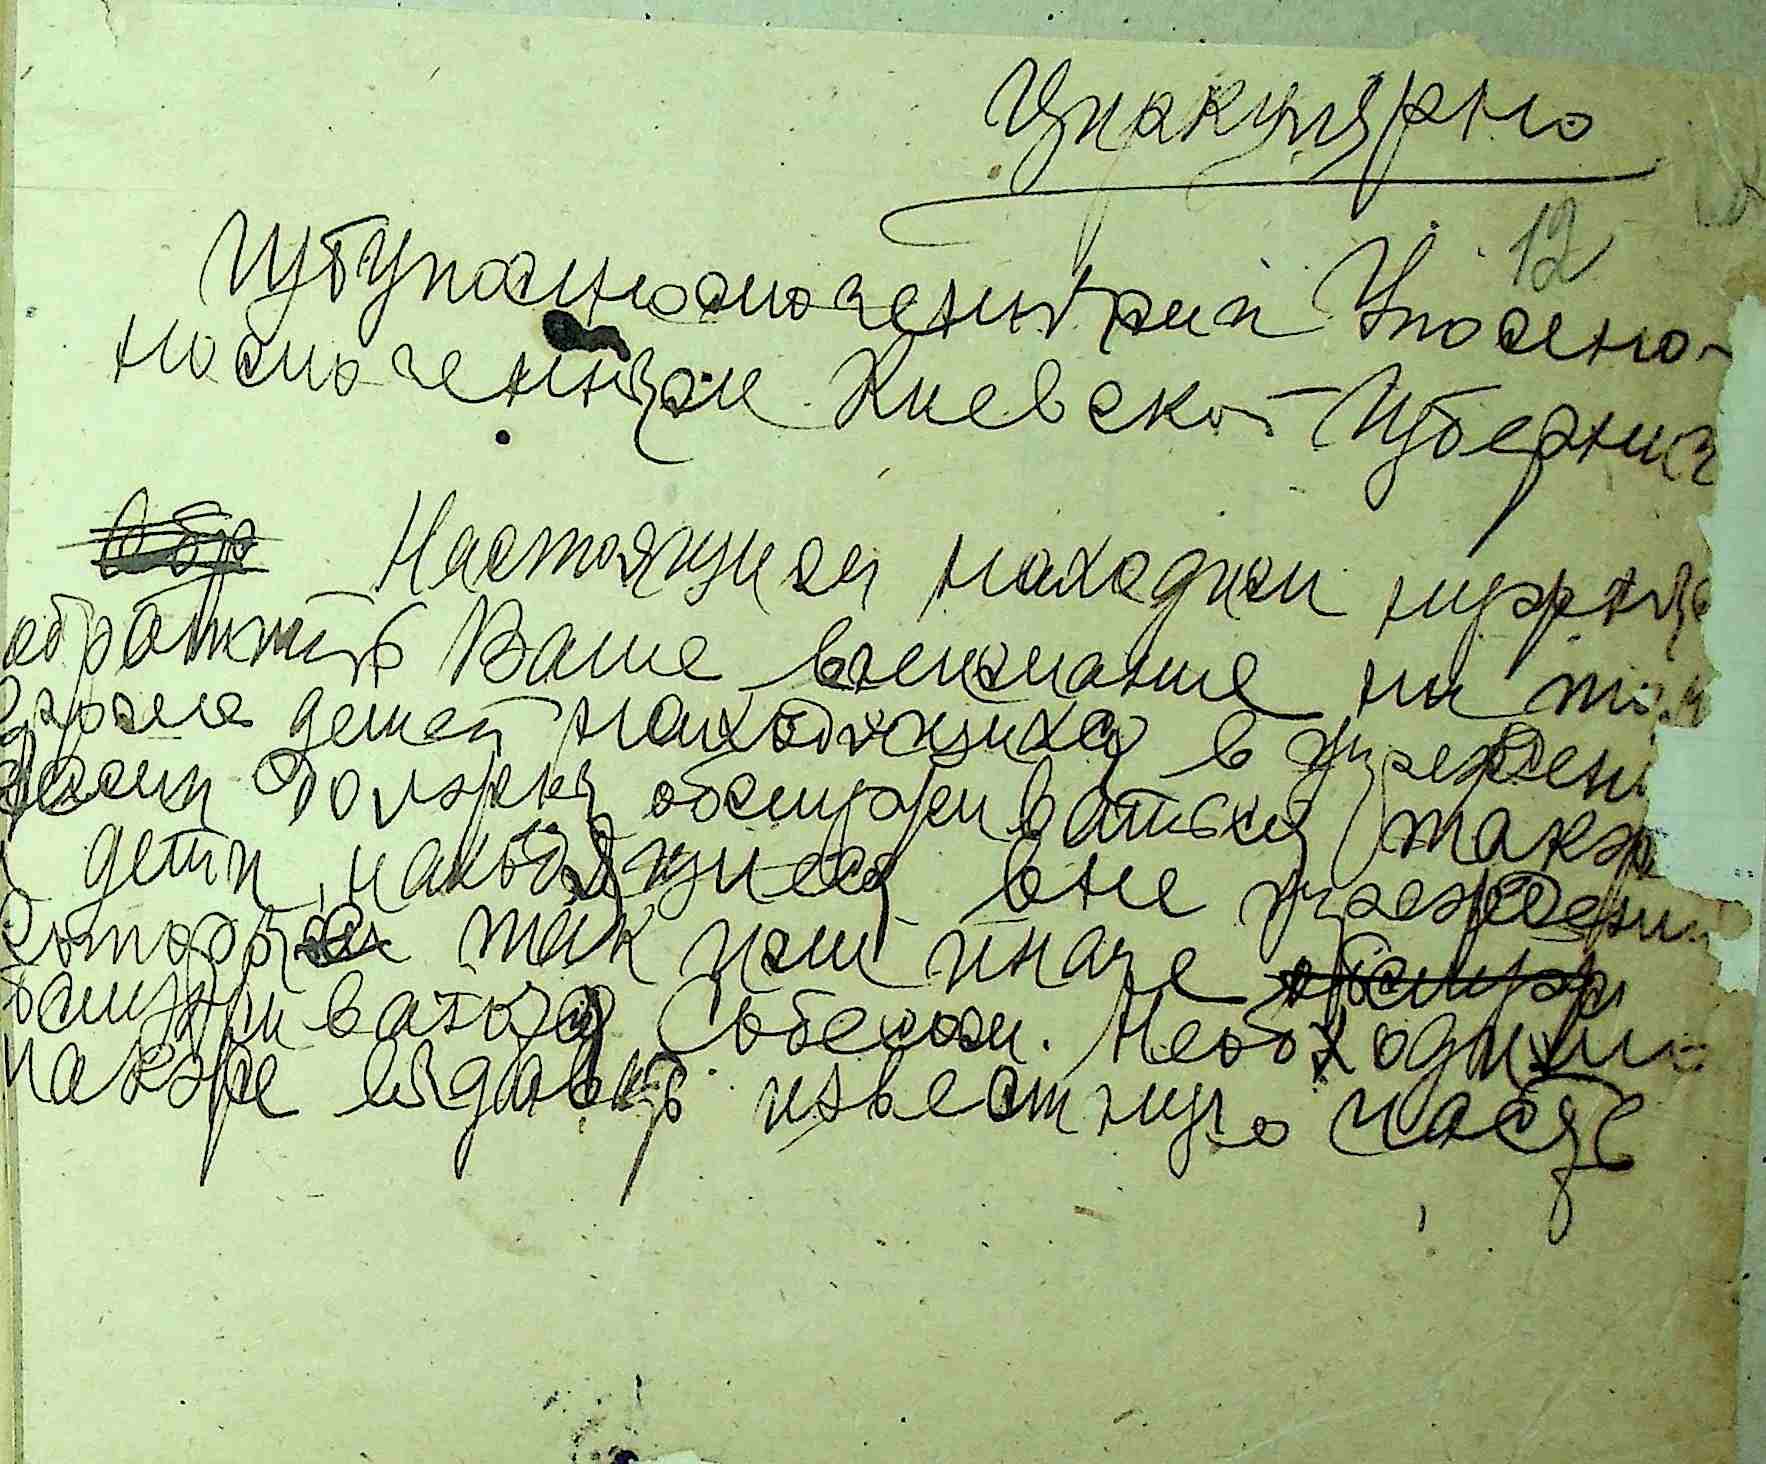 Циркулярно
12
Губуполномоченным и Уполно-
моченным Киевской Губернии
Обр Настоящим находим нужны
обратить Ваше внимание на то
кроме детей находящихся в учрежден
должны обслуживаться также
дети, находящиеся вне учреждени
которые так или иначе обслуж
бслуживаются Собесом. Необходимо
также выдавать известную часть